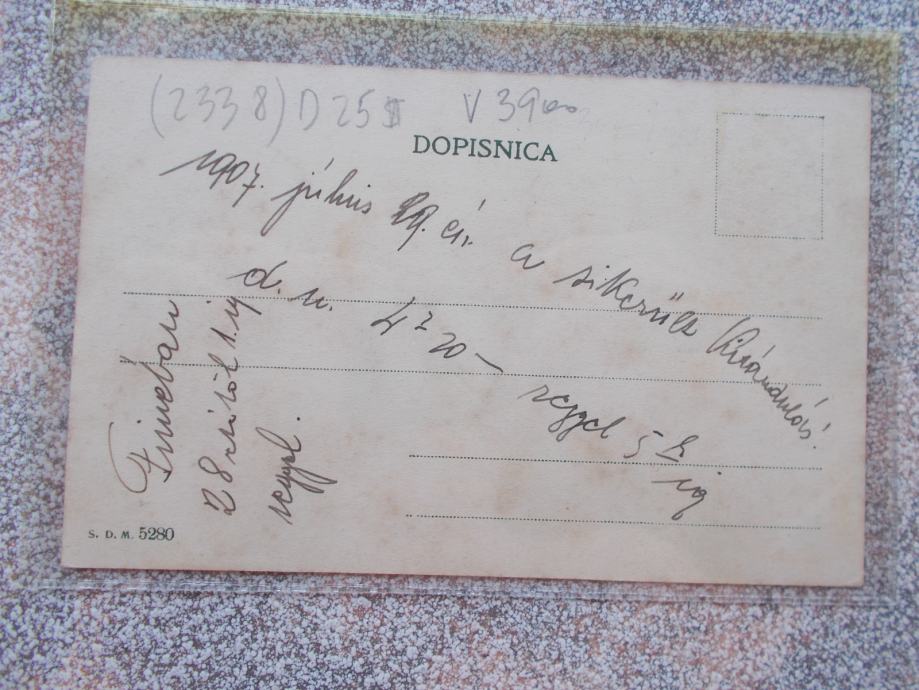 (2338) D 25 V 39
DOPISNICA
1907. július 29. én a sikerült kirándulás!
d. u. 4
20 – reggel 5 ig
Fiuméban
28 ától
reggel.
S. D. M. 5280